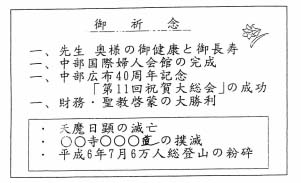 御祈念
一、先生 奥様の御健康と御長寿
一、中部国際婦人会館の完成
一、中部広布40周年記念
「第11回祝賀大総会」の成功
一、財務・聖教啓蒙の大勝利
・ 天魔日顕の滅亡
・ 〇〇寺〇〇〇〇の撲滅
・ 平成6年7月6万人総登山の粉砕